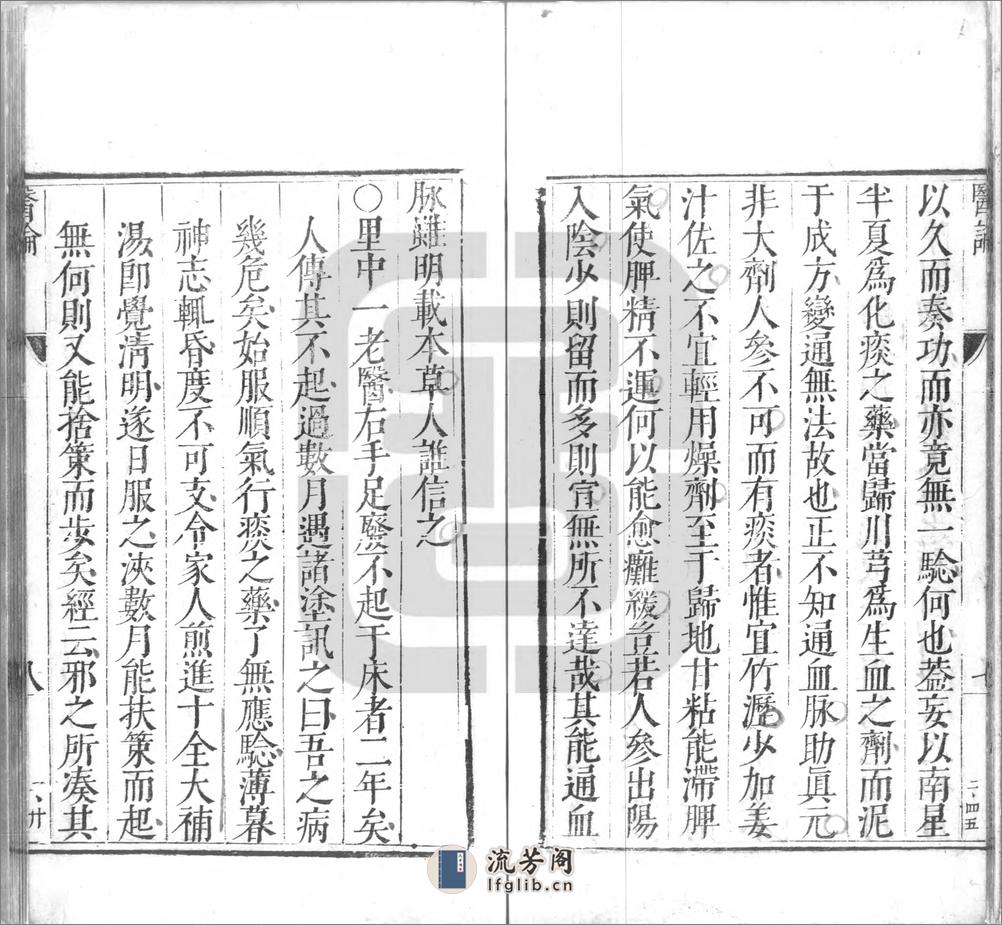 以久而奏功而亦竟無一驗何也蓋妄以南星
半夏爲化痰之藥當歸川芎爲生血之劑而泥
于成方變通無法故也正不知通血脉助眞元
非大劑人參不可而有痰者惟宜竹瀝少加姜
汁佐之不宜輕用燥劑至于歸地甘粘能滯脾
氣使脾精不運何以能愈癱緩豈若人參出陽
入陰少則留而多則宣無所不達哉其能通血
脉雖明載本草人誰信之
○里中一老醫右手足廢不起于床者二年矣
人傳其不起過數月遇諸塗訊之曰吾之病
幾危矣始服順氣行痰之藥了無應驗薄暮
神志輒昏度不可支令家人煎進十全大補
湯卽覺清明遂日服之浹數月能扶策而起
無何則又能捨策而步矣經云邪之所凑其
八
流芳阁
lfglib.cn